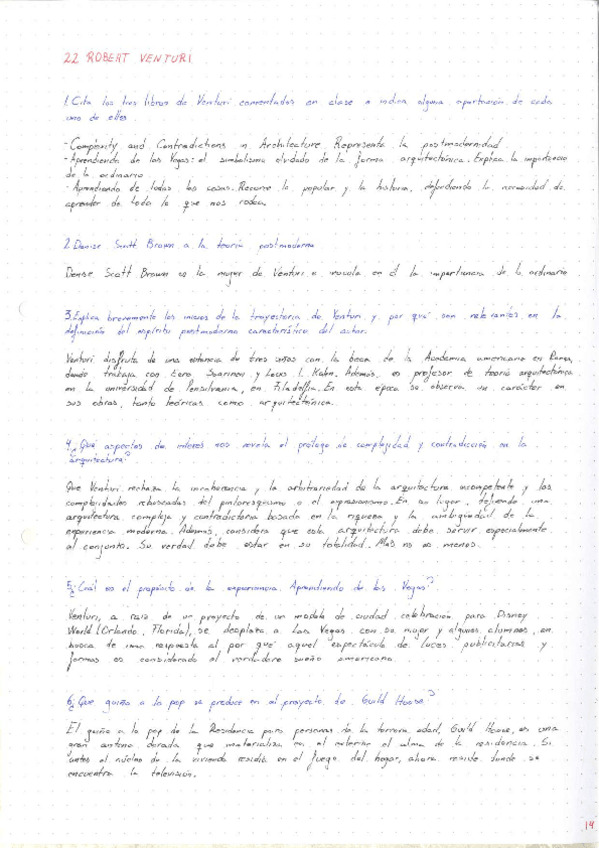 22 ROBERT VENTURI
1. Cita los tres libros de Venturi comentados en clase e indica alguna aportación de cada
uno de ellos
- Complexity and Contradictions in Architecture. Representa la postmodernidad
- Aprendiendo de las Vegas: el simbolismo olvidado de la forma arquitectónica. Explica la importancia
de lo ordinario
- Aprendiendo de todas las cosas. Recorre lo popular y la historia, defendiendo la necesidad de
aprender de todo lo que nos rodea.
2. Denise Scott Brown a la teoría postmoderna
Denise Scott Brown es la mujer de Venturi e inculca en él la importancia de lo ordinario
3. Explica brevemente los inicios de la trayectoria de Venturi y por qué son relevantes en la
definición del espíritu postmoderno característico del autor.
Venturi disfruta de una estancia de tres años con la beca de la Academia americana en Roma,
donde trabaja con Eero Saarinen y Louis I. Kahn. Además, es profesor de teoría arquitectónica
en la universidad de Pensilvania, en Filadelfia. En esta época se observa un carácter en
sus obras, tanto teóricas como arquitectónica.
4. ¿Qué aspectos de interés nos revela el prólogo de complejidad y contradicción en la
arquitectura?
Que Venturi rechaza la incoherencia y la arbitrariedad de la arquitectura incompetente y las
complejidades rebuscadas del pintoresquismo o el expresionismo. En su lugar, defiende una
arquitectura compleja y contradictoria basada en la riqueza y la ambigüedad de la
experiencia moderna. Además, considera que esta arquitectura debe servir especialmente
al conjunto. Su verdad debe estar en su totalidad. Más no es menos.
5. ¿Cuál es el propósito de la experiencia Aprendiendo de las Vegas?
Venturi, a raíz de un proyecto de un modelo de ciudad celebración para Disney
World (Orlando, Florida), se desplaza a Las Vegas con su mujer y algunos alumnos, en
busca de una respuesta al por qué aquel espectáculo de luces publicitarias y
formas es considerado el verdadero sueño americano.
6. ¿Que guiño a lo pop se produce en el proyecto de Guild House?
El guiño a lo pop de la Residencia para personas de la tercera edad, Guild House, es una
gran antena dorada que materializa en el exterior el alma de la residencia. Si
antes el núcleo de la vivienda residía en el fuego del hogar, ahora reside donde se
encuentra la televisión.
14